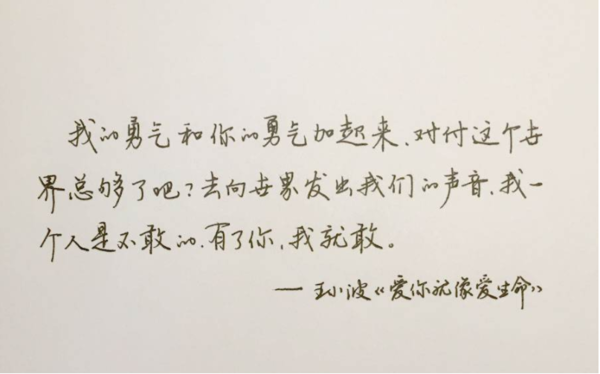 我的勇气和你的勇气加起来、对付这个世
界总够了吧?去向世界发出我们的声音、我一
个人是不敢的、有了你、我就敢。
— 王小波《爱你就像爱生命》